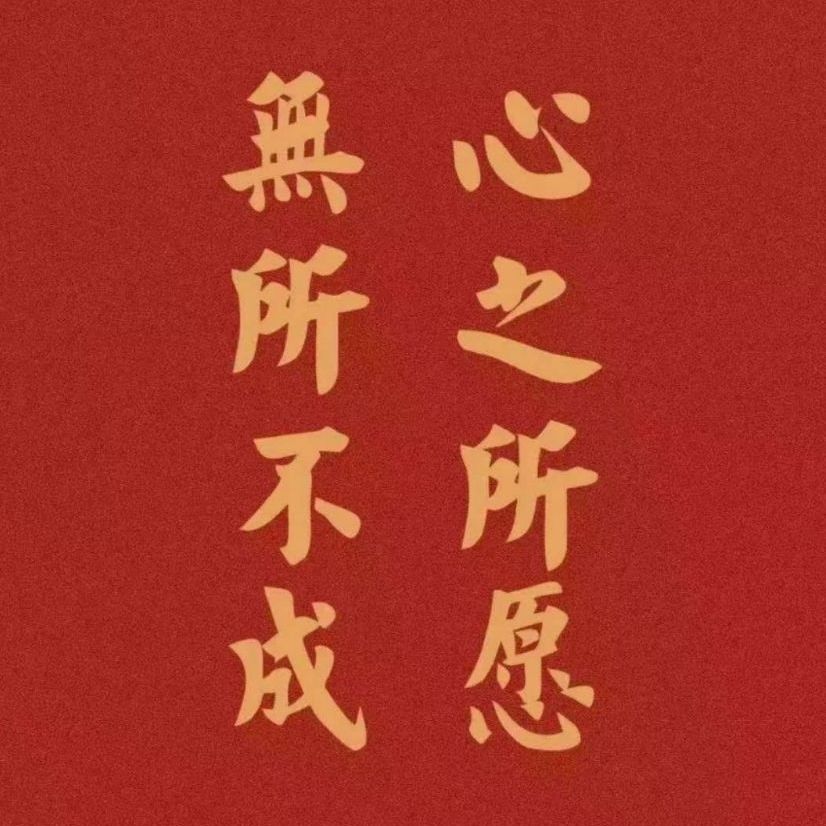 心之所愿
無所不成